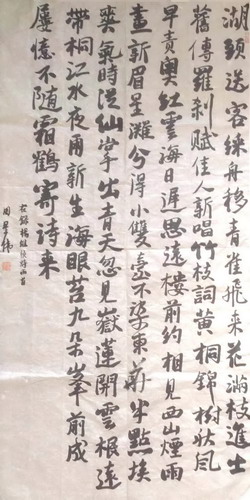 湖頭送客綠舟移青雀飛來花滿枝進士
舊傳羅刹賦佳人新唱竹枝詞黃桐錦樹秋風
早責奧紅雲海日遲思遠樓前約相見西山煙雨
畫新眉星灘分得小雙臺不染東莊半點埃
爽氣時從仙掌出青天忽見嶽蓮開雲根遠
帶桐江水夜雨新生海眼苔九朵峯前成
屢憶不隨霜鶴寄詩來
右錄楊維楨詩兩首